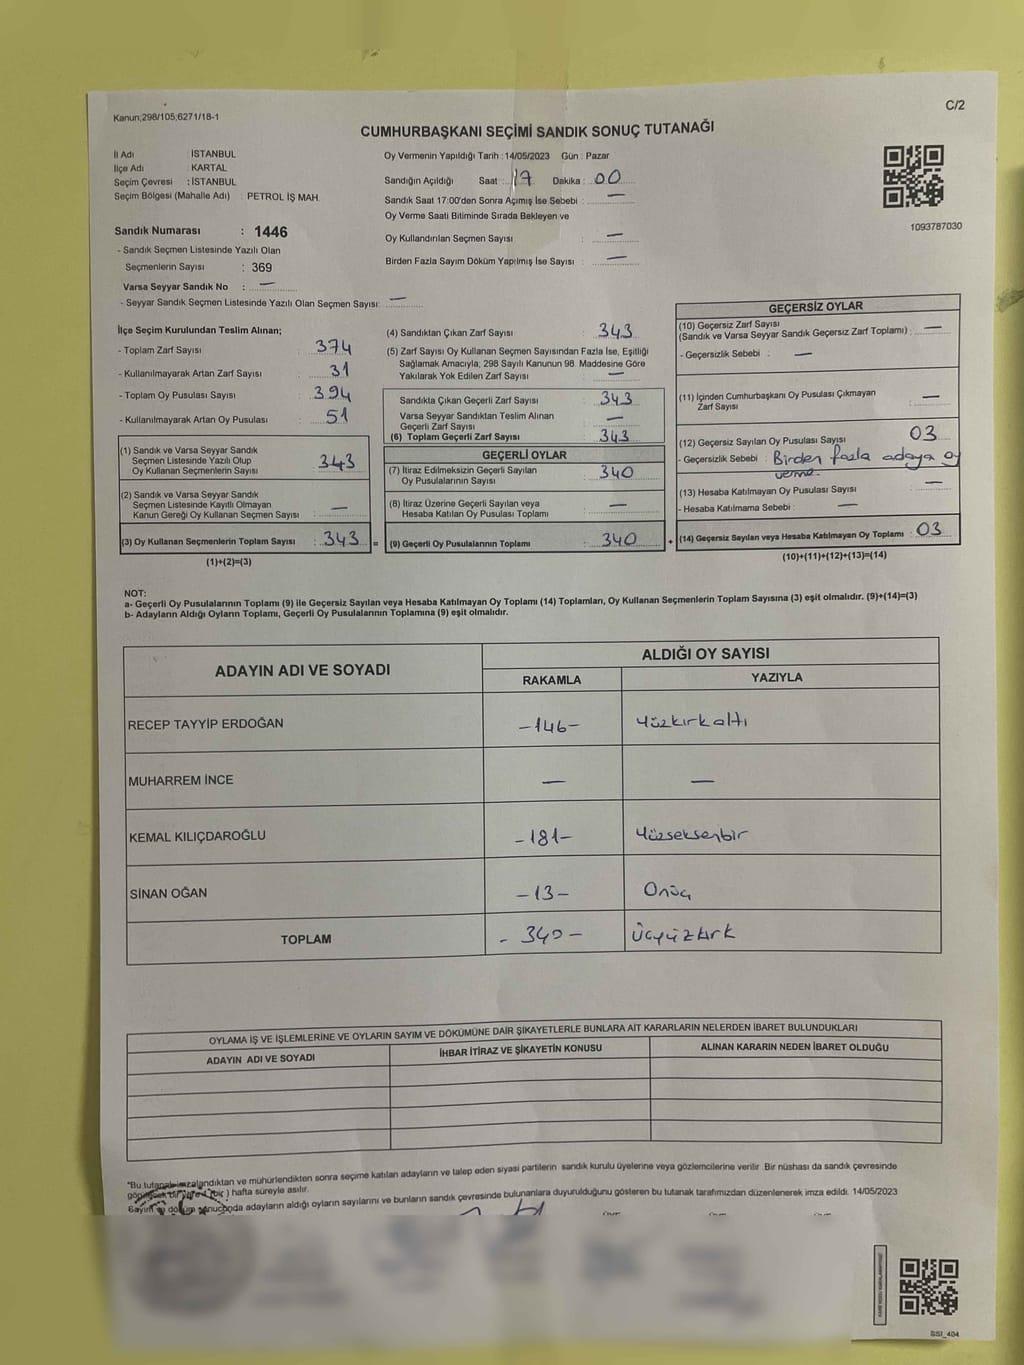 Kanun;298/105;6271/18-1
C/2
CUMHURBAŞKANI SEÇİMİ SANDIK SONUÇ TUTANAĞI
İl Adı : İSTANBUL
İlçe Adı : KARTAL
Seçim Çevresi : İSTANBUL
Seçim Bölgesi (Mahalle Adı) : PETROL İŞ MAH.
Sandık Numarası : 1446
- Sandık Seçmen Listesinde Yazılı Olan
Seçmenlerin Sayısı : 369
Varsa Seyyar Sandık No : —
- Seyyar Sandık Seçmen Listesinde Yazılı Olan Seçmen Sayısı: —
Oy Vermenin Yapıldığı Tarih : 14/05/2023 Gün : Pazar
Sandığın Açıldığı Saat : 17 Dakika : 00
Sandık Saat 17:00'den Sonra Açımış İse Sebebi : —
Oy Verme Saati Bitiminde Sırada Bekleyen ve
Oy Kullandırılan Seçmen Sayısı : —
Birden Fazla Sayım Döküm Yapılmış İse Sayısı : —
1093787030
İlçe Seçim Kurulundan Teslim Alınan;
- Toplam Zarf Sayısı : 374
- Kullanılmayarak Artan Zarf Sayısı : 31
- Toplam Oy Pusulası Sayısı : 394
- Kullanılmayarak Artan Oy Pusulası : 51
(1) Sandık ve Varsa Seyyar Sandık
Seçmen Listesinde Yazılı Olup
Oy Kullanan Seçmenlerin Sayısı : 343
(2) Sandık ve Varsa Seyyar Sandık
Seçmen Listesinde Kayıtlı Olmayan
Kanun Gereği Oy Kullanan Seçmen Sayısı : —
(3) Oy Kullanan Seçmenlerin Toplam Sayısı : 343 =
(1)+(2)=(3)
(4) Sandıktan Çıkan Zarf Sayısı : 343
(5) Zarf Sayısı Oy Kullanan Seçmen Sayısından Fazla İse, Eşitliği
Sağlamak Amacıyla; 298 Sayılı Kanunun 98. Maddesine Göre
Yakılarak Yok Edilen Zarf Sayısı : —
Sandıkta Çıkan Geçerli Zarf Sayısı : 343
Varsa Seyyar Sandıktan Teslim Alınan
Geçerli Zarf Sayısı : —
(6) Toplam Geçerli Zarf Sayısı : 343
GEÇERLİ OYLAR
(7) İtiraz Edilmeksizin Geçerli Sayılan
Oy Pusulalarının Sayısı : 340
(8) İtiraz Üzerine Geçerli Sayılan veya
Hesaba Katılan Oy Pusulası Toplamı : —
(9) Geçerli Oy Pusulalarının Toplamı : 340 +
GEÇERSİZ OYLAR
(10) Geçersiz Zarf Sayısı
(Sandık ve Varsa Seyyar Sandık Geçersiz Zarf Toplamı) : —
- Geçersizlik Sebebi : —
(11) İçinden Cumhurbaşkanı Oy Pusulası Çıkmayan
Zarf Sayısı : —
(12) Geçersiz Sayılan Oy Pusulası Sayısı : 03
- Geçersizlik Sebebi : Birden fazla adaya oy
verme.
(13) Hesaba Katılmayan Oy Pusulası Sayısı : —
- Hesaba Katılmama Sebebi : —
(14) Geçersiz Sayılan veya Hesaba Katılmayan Oy Toplamı : 03
(10)+(11)+(12)+(13)=(14)
NOT:
a- Geçerli Oy Pusulalarının Toplamı (9) ile Geçersiz Sayılan veya Hesaba Katılmayan Oy Toplamı (14) Toplamları, Oy Kullanan Seçmenlerin Toplam Sayısına (3) eşit olmalıdır. (9)+(14)=(3)
b- Adayların Aldığı Oyların Toplamı, Geçerli Oy Pusulalarının Toplamına (9) eşit olmalıdır.
ADAYIN ADI VE SOYADI
ALDIĞI OY SAYISI
RAKAMLA YAZIYLA
RECEP TAYYİP ERDOĞAN -146- Yüzkırkaltı
MUHARREM İNCE — —
KEMAL KILIÇDAROĞLU -181- Yüzseksenbir
SİNAN OĞAN -13- Onüç
TOPLAM - 340 - Üçyüzkırk
OYLAMA İŞ VE İŞLEMLERİNE VE OYLARIN SAYIM VE DÖKÜMÜNE DAİR ŞİKAYETLERLE BUNLARA AİT KARARLARIN NELERDEN İBARET BULUNDUKLARI
ADAYIN ADI VE SOYADI İHBAR İTİRAZ VE ŞİKAYETİN KONUSU ALINAN KARARIN NEDEN İBARET OLDUĞU
"Bu tutanak imzalandıktan ve mühürlendikten sonra seçime katılan adayların ve talep eden siyasi partilerin sandık kurulu üyelerine veya gözlemcilerine verilir. Bir nüshası da sandık çevresinde
görülecek bir yere 1 (bir) hafta süreyle asılır.
Sayım ve döküm sonucunda adayların aldığı oyların sayılarını ve bunların sandık çevresinde bulunanlara duyurulduğunu gösteren bu tutanak tarafımızdan düzenlenerek imza edildi. 14/05/2023
SSI_404